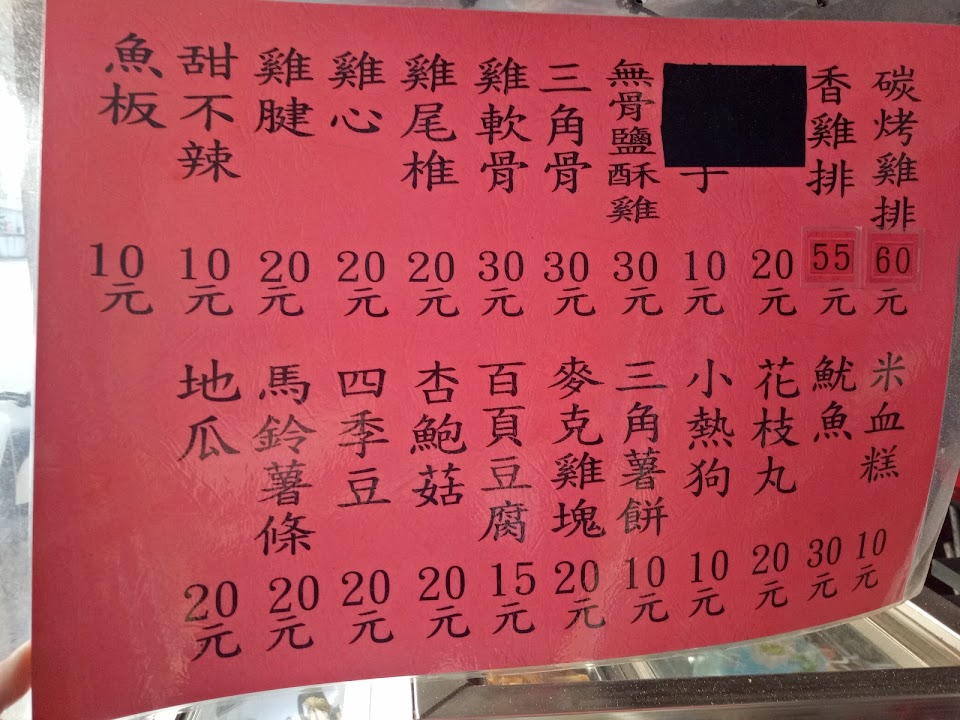 碳烤雞排 60元
香雞排 55元
20元
10元
無骨鹽酥雞 30元
三角骨 30元
雞軟骨 30元
雞尾椎 20元
雞心 20元
雞腱 20元
甜不辣 10元
魚板 10元
米血糕 10元
魷魚 30元
花枝丸 20元
小熱狗 10元
三角薯餅 10元
麥克雞塊 20元
百頁豆腐 15元
杏鮑菇 20元
四季豆 20元
馬鈴薯條 20元
地瓜 20元